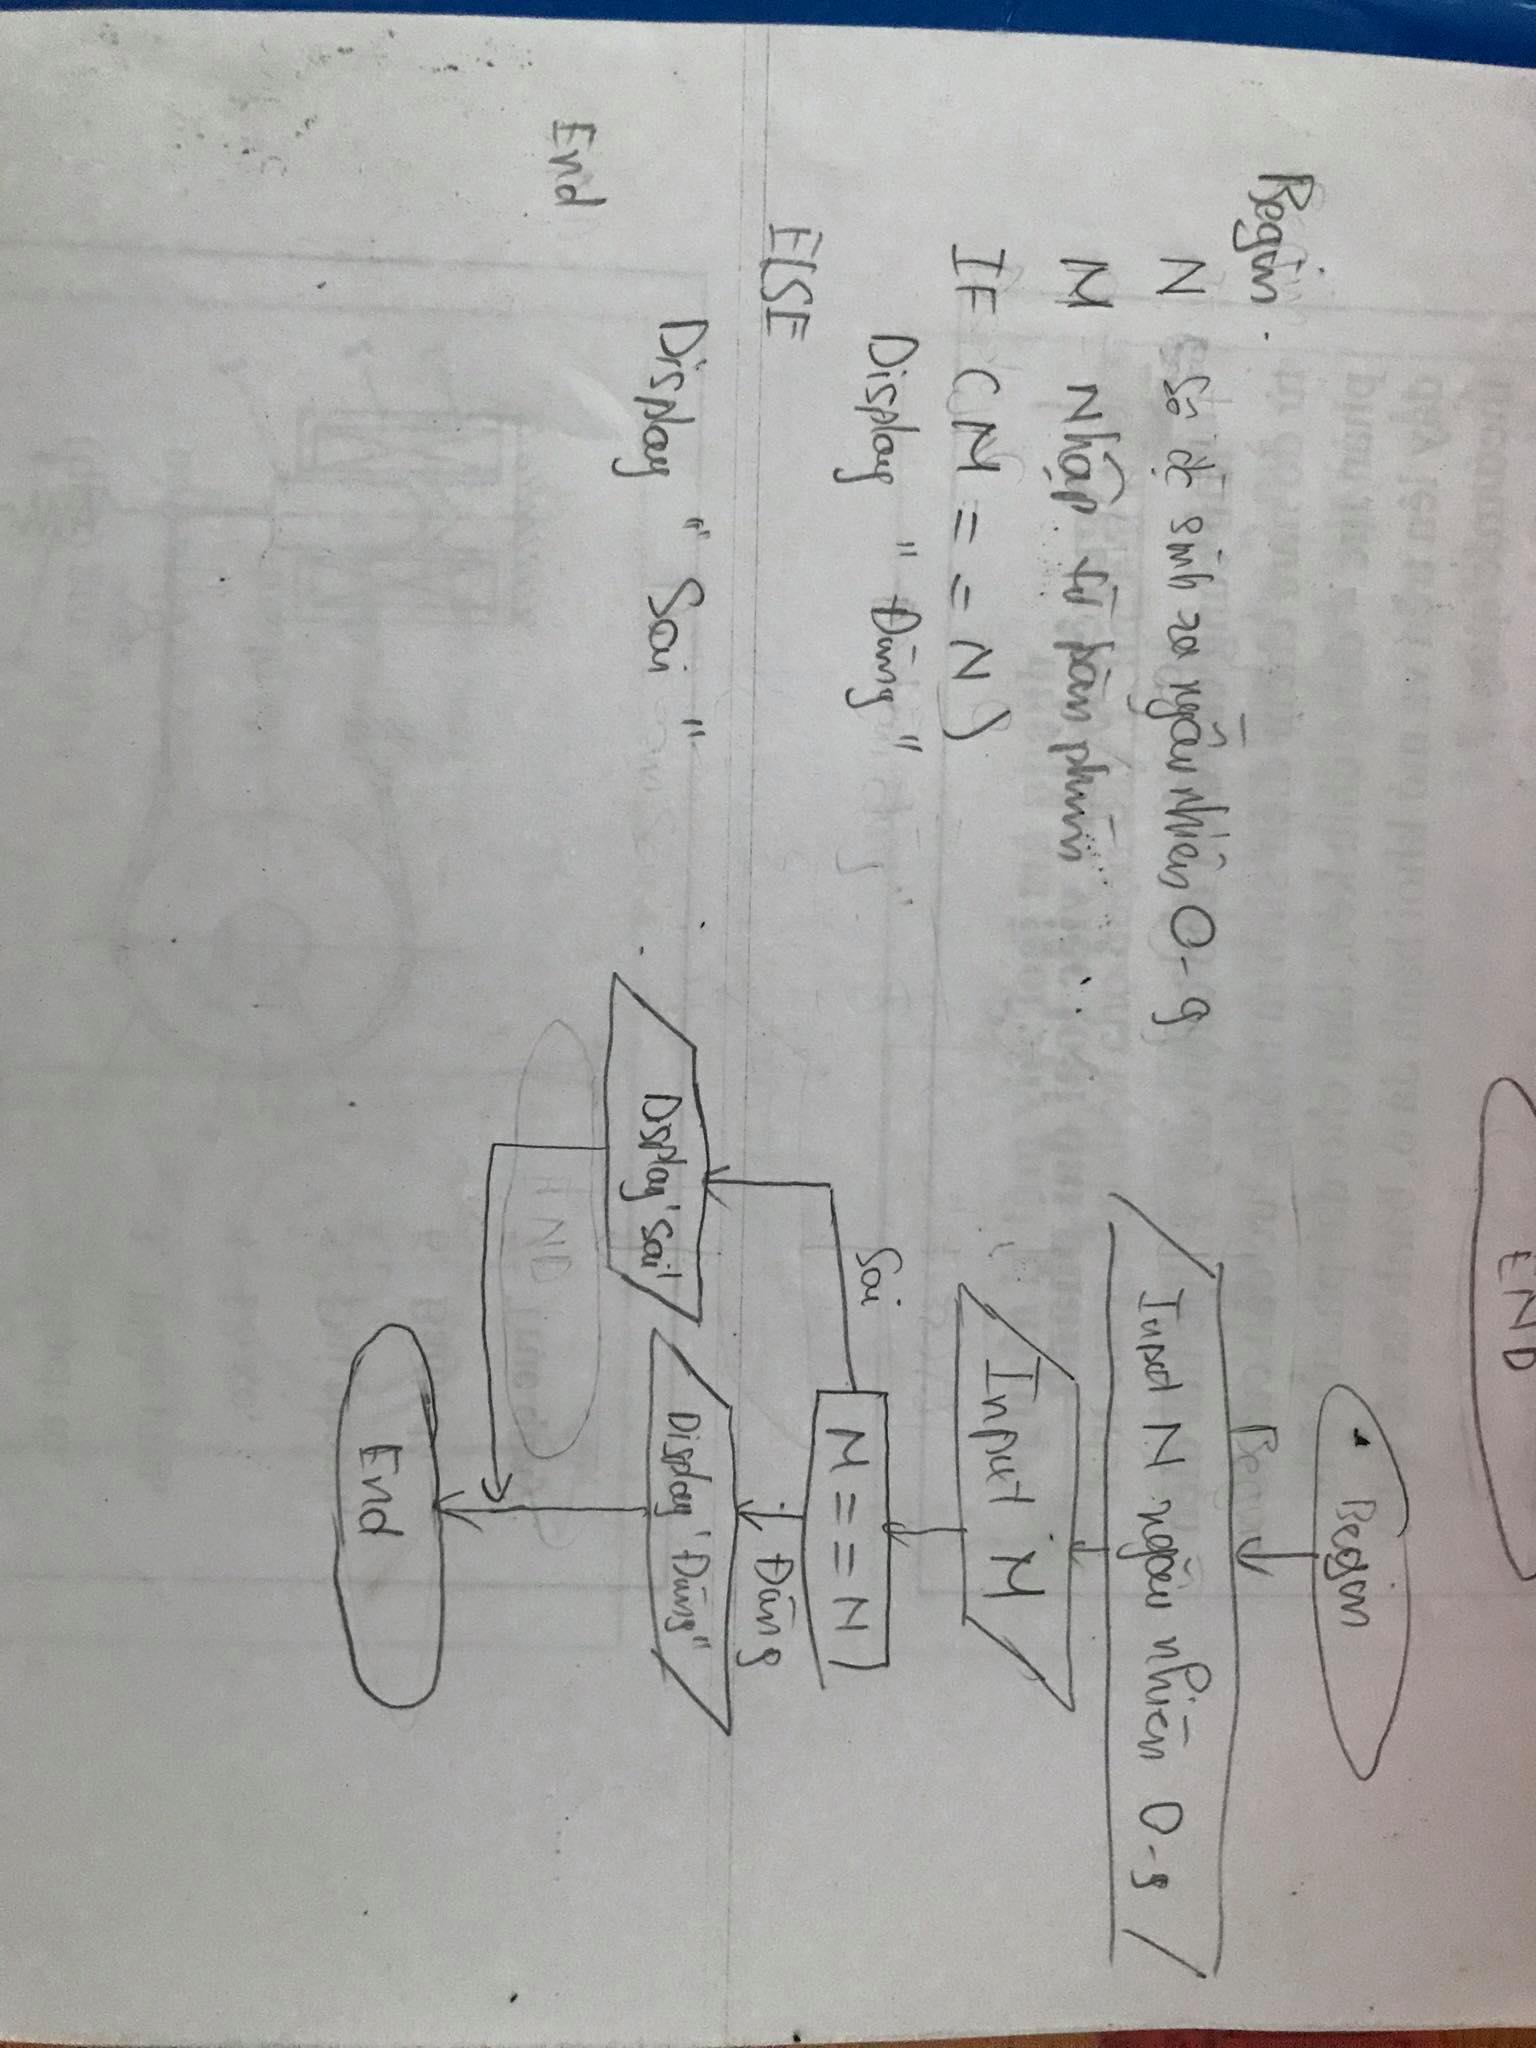 Begin
N số đc sinh ra ngẫu nhiên 0-9
M Nhập từ bàn phím
IF (M == N)
Display "Đúng"
ELSE
Display "Sai"
End
END
Begin
Input N ngẫu nhiên 0-9
Input M
M == N)
Sai
Đúng
Display "Sai"
Display "Đúng"
End